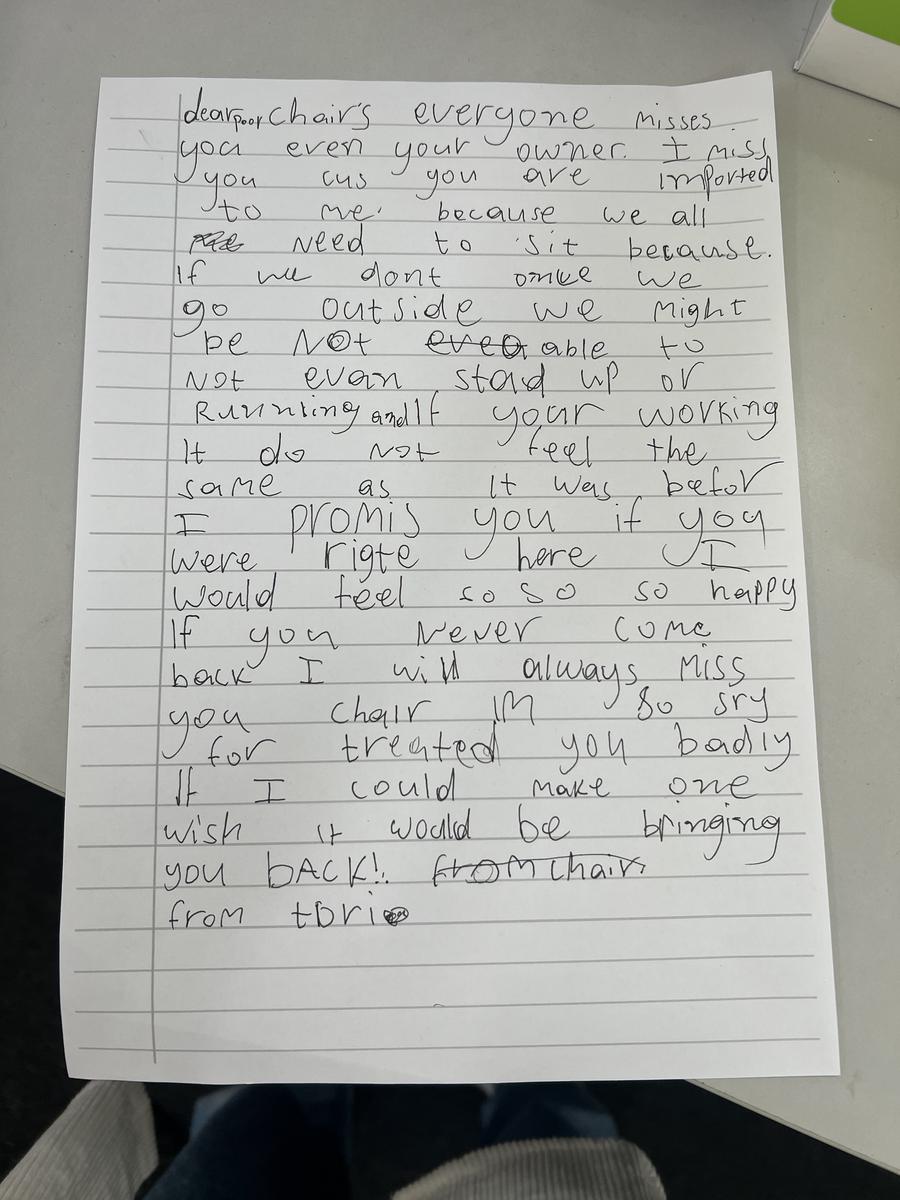 dear poor chair's everyone misses.
you even your owner. I miss
you cus you are imported
to me. because we all
need to sit because.
If we dont once we
go outside we might
be NOt able to
Not evan stad up or
Running and If your working
It do Not feel the
same as It was befor
I promis you if you
were rigte here I
would feel so so so happy
If you Never come
back I will always Miss
you chair IM so sry
for treated you badly
If I could make one
wish It would be bringing
you bACK!.
from tori